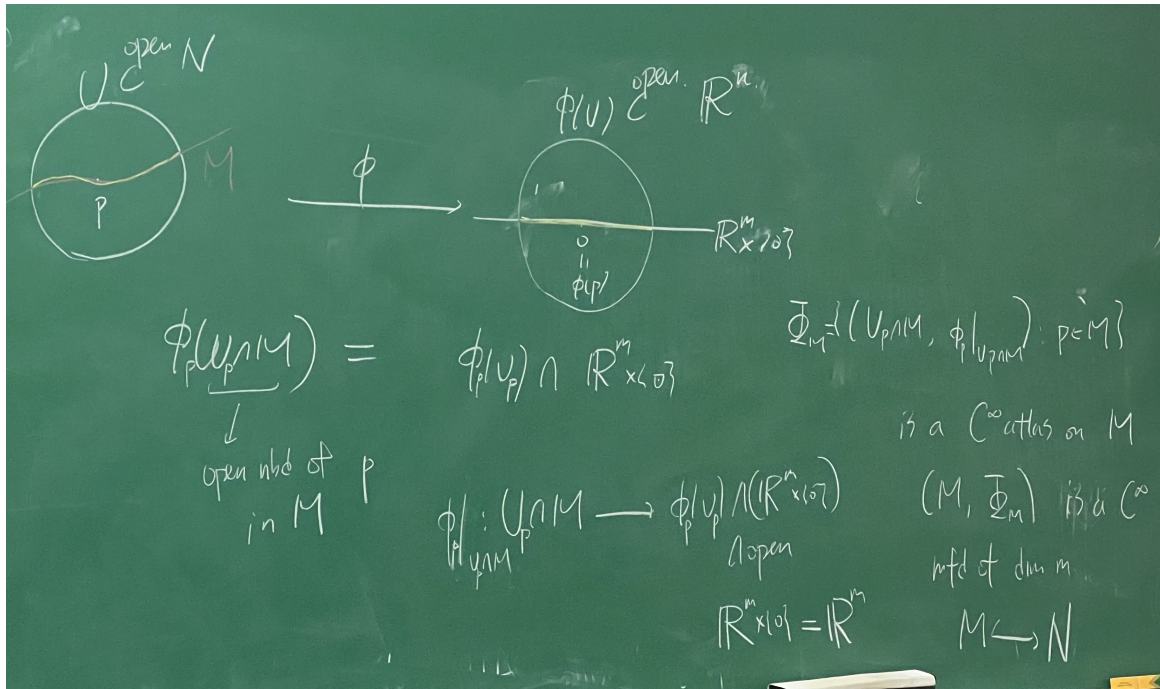 U ⊂^{open} N
M
p
ϕ
ϕ(U) ⊂^{open} ℝ^n
ℝ^m × {0}
0
||
ϕ(p)
ϕ_p(U_p∩M) = ϕ_p(U_p) ∩ ℝ^m × {0}
↓
open nbd of p
in M
ϕ_p|_{U_p∩M} : U_p∩M ⟶ ϕ_p(U_p) ∩ (ℝ^m × {0})
∩ open
ℝ^m × {0} = ℝ^m
Φ_M = {(U_p∩M, ϕ_p|_{U_p∩M}) : p∈M}
is a C^∞ atlas on M
(M, Φ_M) is a C^∞
mfd of dim m
M ↪ N